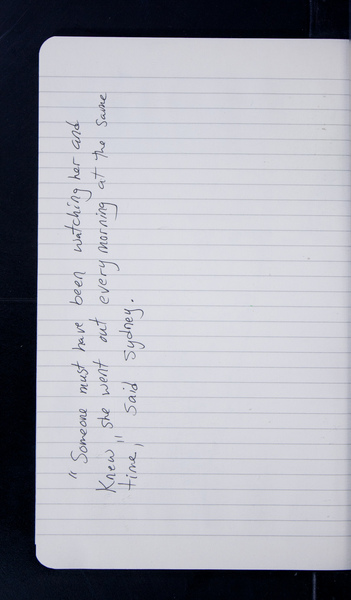 "Someone must have been watching her and
knew she went out every morning at the same
time," said Sydney.